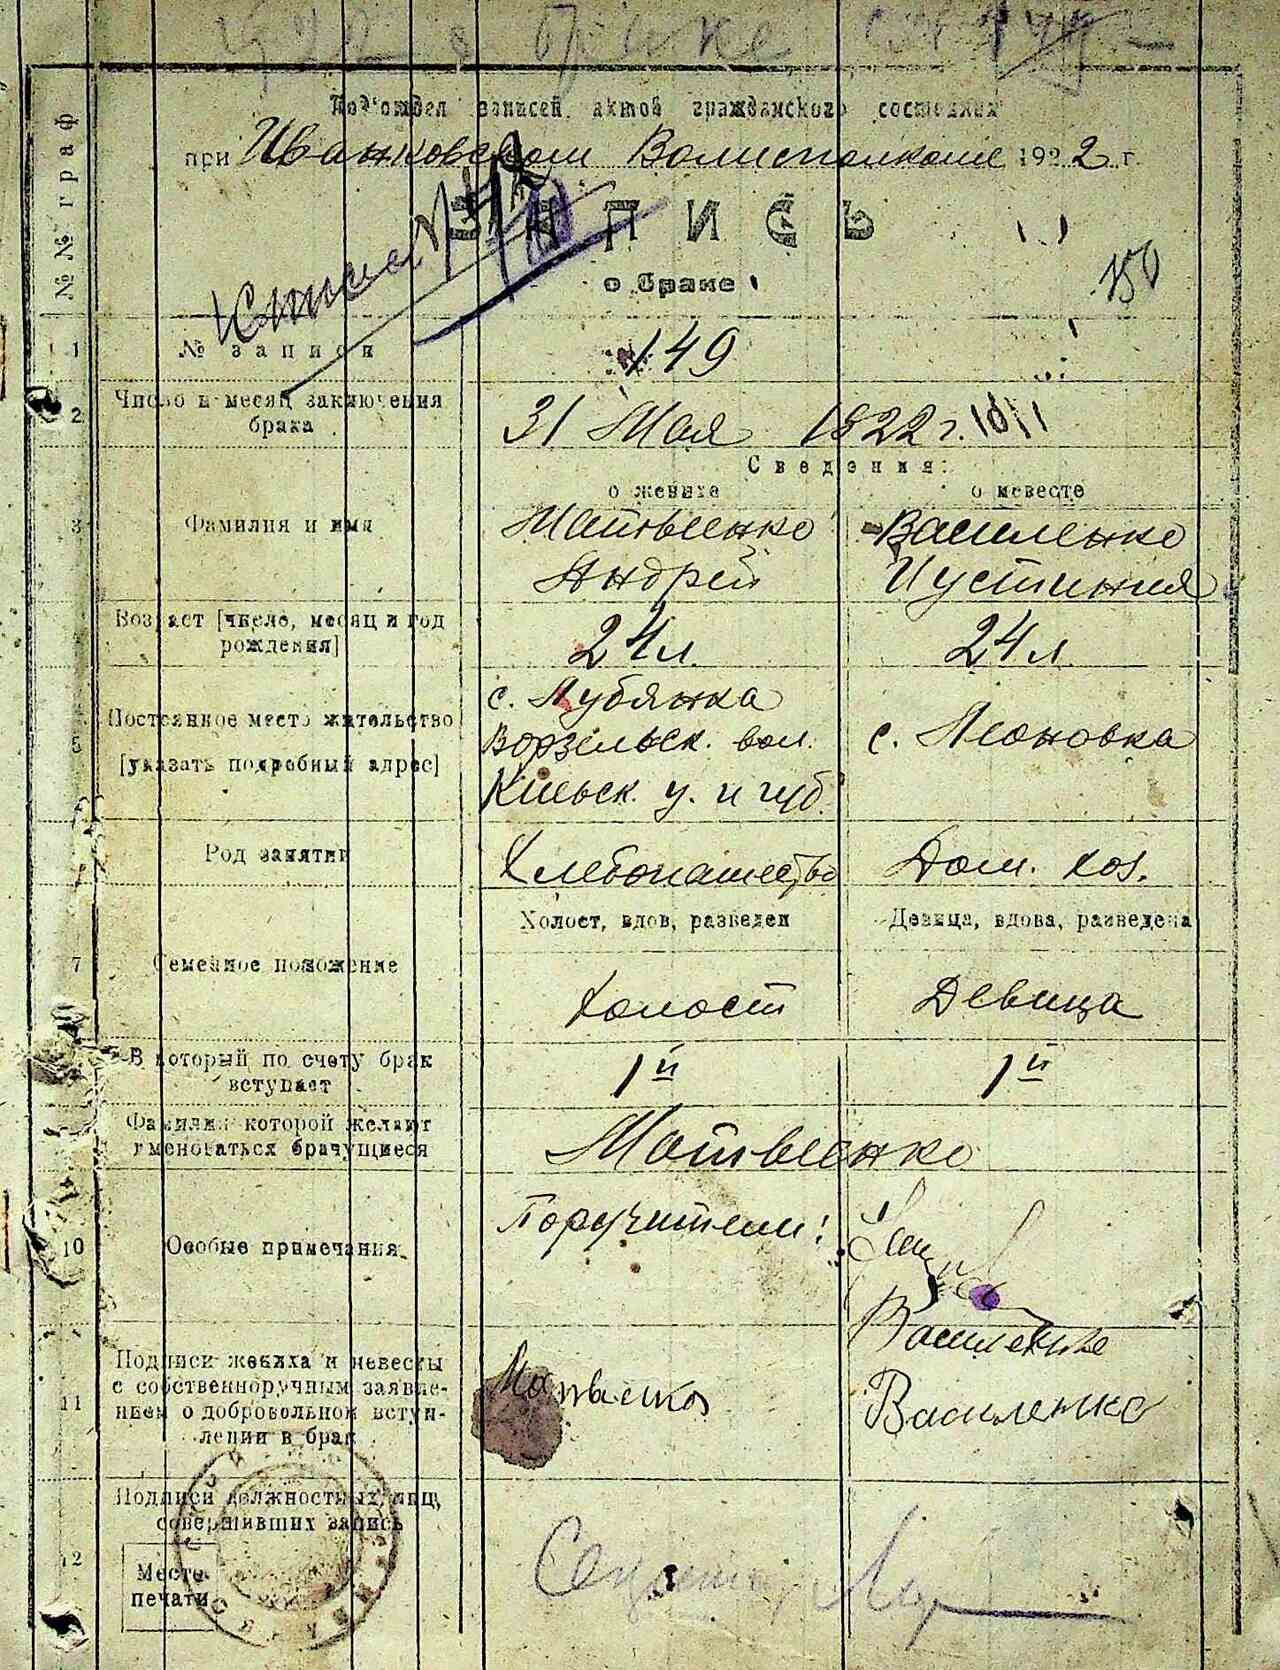 Подотдел записей актов гражданского состояния
при Иванковском Волисполкоме 1922 г.
ЗАПИСЬ
о браке
150
№№ граф
1 № записи 149
2 Число и месяц заключения брака 31 Мая 1822 г.
Сведения:
о женихе о невесте
3 Фамилия и имя Матвеенко Василенко
Андрей Иустиния
Возраст [число, месяц и год рождения] 24 л. 24 л.
5 Постоянное место жительство [указать подробный адрес] с. Лубянка с. Леоновка
Ворзельск. вол.
Киевск. у. и губ.
Род занятий Хлебопашество Дом. хоз.
Холост, вдов, разведен Девица, вдова, разведена
7 Семейное положение Холост Девица
В который по счету брак вступает 1й 1й
Фамилия которой желают именоваться брачущиеся Матвеенко
10 Особые примечания Поручители:
Василенко
11 Подписи жениха и невесты с собственноручным заявле-
нием о добровольном вступ-
лении в брак Матвеенко Василенко
12 Подписи должностных лиц, совершивших запись
Место печати